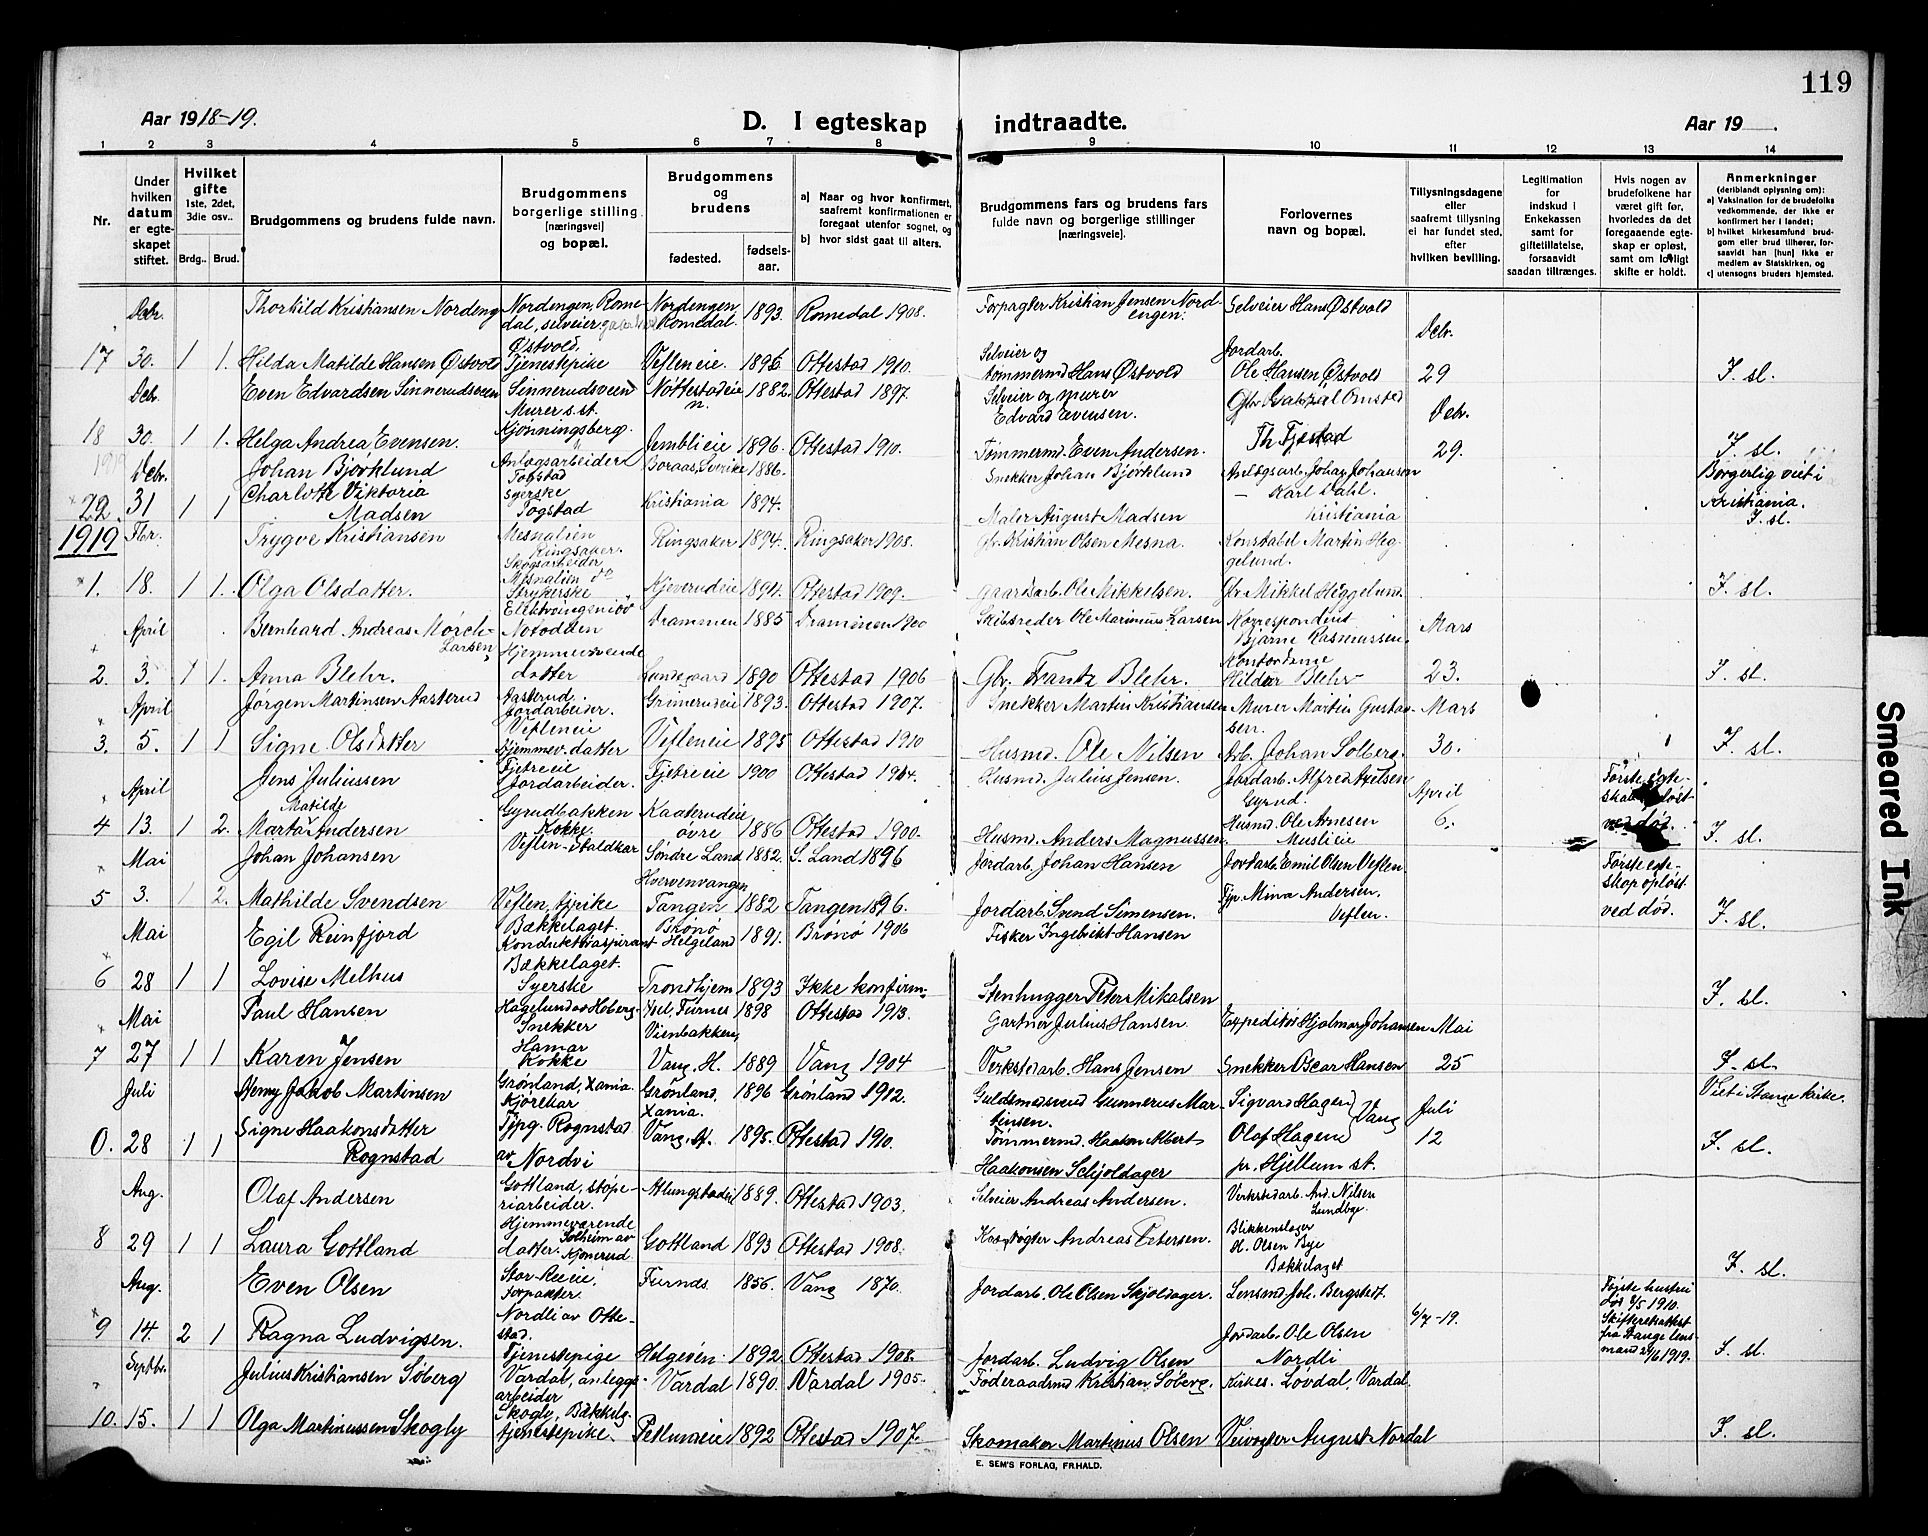 119
Aar 1918-19.
D. I egteskap indtraadte.
Aar 19 .
1 2 3 4 5 6 7 8 9 10 11 12 13 14
Nr.
Under hvilken datum er egteskapet stiftet.
Hvilket gifte 1ste, 2det, 3die osv..
Brdg.. Brud.
Brudgommens og brudens fulde navn.
Brudgommens borgerlige stilling [næringsvei] og bopæl.
Brudgommens og brudens
fødested.
fødselsaar.
a) Naar og hvor konfirmert, saafremt konfirmationen er foregaat utenfor sognet, og
b) hvor sidst gaat til alters.
Brudgommens fars og brudens fars fulde navn og borgerlige stillinger [næringsveie].
Forlovernes navn og bopæl.
Tillysningsdagene eller saafremt tillysning ei har fundet sted, efter hvilken bevilling.
Legitimation for indskud i Enkekassen samt for giftetillatelse, forsaavidt saadan tiltrænges.
Hvis nogen av brudefolkene har været gift før, hvorledes da det foregaaende egteskap er opløst, samt om lovligt skifte er holdt.
Anmerkninger (deriblandt oplysning om):
a) Vaksination for de brudefolks vedkommende, der ikke er konfirmert her i landet;
b) hvilket kirkesamfund brudgom eller brud tilhører, forsaavidt han [hun] ikke er medlem av Statskirken, og
c) utensogns bruders hjemsted.
Decbr. Thorbild Kristiansen Nordeng Nordengen, Romedal, selveier Nordengen Romedal. 1893. Romedal 1908. Forpagter Kristian Jensen Nordengen. Selveier Hans Østvold Decbr.
17 30. 1 1. Hilda Matilde Hansen Østvold Østvold Tjenestepike Veflen eie. 1896 Ottestad 1910. Selveier og tømmermd Hans Østvold Jordarb. Ole Hansen Østvold 29 F. sl.
Decbr. Even Edvardsen Sinnerudsveen Sinnerudsveen Murer s.st. Nøttestadeien. 1882. Ottestad 1897. Selveier og murer Edvard Evensen. Decbr.
18 30. 1 1. Helga Andrea Evensen. Kjønningsberg. Jemblieie 1896. Ottestad 1910. Tømmermd. Even Andersen. Th Fjæstad 29. F. sl.
Decbr. Johan Bjørklund Anlægsarbeider Togstad Boraas, Sverike 1886. Snekker Johan Bjørklund Anlægsarb. Johan Johanson Borgerlig viet i Kristiania.
22. 31 1 1 Charlotte Viktoria Madsen Syerske Togstad Kristiania 1894. Maler August Madsen — Karl Dahl. Kristiania F. sl.
1919 Fbr. Trygve Kristiansen Mesnalien Ringsaker. Skogsarbeider Ringsaker 1894. Ringsaker 1908. Gbr. Kristian Olsen Mesna. Konstabel Martin Heggelund.
1. 18. 1 1. Olga Olsdatter. Mesnalien do Strykerske Kjeverudeie 1894. Ottestad 1909. Gaardsarb. Ole Mikkelsen. Gbr Mikkel Heggelund. F. sl.
April Bernhard Andreas Mörch-Larsen Elektroingeniör Notodden Drammen 1885 Drammen 1900 Skibsreder Ole Marinius Larsen Korrespondent Bjarne Rasmussen. Mars
2. 3. 1 1. Anna Blehr. Hjemmeværende datter Lundegaard 1890 Ottestad 1906 Gbr. Frantz Blehr. Kontordame Hildur Blehr 23. F. sl.
April Jörgen Martinsen Aasterud Aasterud. Jordarbeider. Grimerudeie 1893. Ottestad 1907. Snekker Martin Kristiansen Murer Martin Gustavsen. Mars
3. 5. 1 1 Signe Olsdatter Vefleneie Hjemmev. datter Vefleneie 1895 Ottestad 1910 Husmd. Ole Nilsen Arb. Johan Solberg. 30. F. sl.
April Jens Juliussen Fjetreeie Jordarbeider. Fjetreeie 1900 Ottestad 1914. Husmd. Julius Jensen. Jordarb. Alfred Axelsen Gyrud. April Første egteskap opløst ved død.
4 13. 1 2. Marta Matilde Andersen Gyrudbakken Kokke. Kaaterudeie øvre 1886 Ottestad 1900. Husmd. Anders Magnussen Husmd. Ole Arnesen Muslieie 6. F. sl.
Mai Johan Johansen Veflen - Staldkar Søndre Land 1882. S. Land 1896 Jordarb. Johan Hansen Jordarb. Emil Olsen Veflen Første egteskap opløst ved død.
5 3. 1 2. Mathilde Svendsen Veflen, tjpike Hvervenvangen Tangen 1882 Tangen 1896. Jordarb. Svend Simensen. Tjp. Mina Andersen. Veflen. F. sl.
Mai Egil Reinfjord Bækkelaget. Konduktøraspirant Brønø Helgeland 1891. Brønø 1906 Fisker Ingebrikt Hansen
6 28 1 1 Lovise Melhus Bækkelaget. Syerske Trondhjem 1893 Ikke konfirm. Stenhugger Peter Mikalsen F. sl.
Mai Paul Hansen Hagelund av Hoberg. Snekker Furnes 1898 Ottestad 1913. Gartner Julius Hansen. Expeditör Hjalmar Johansen Mai
7 27 1 1 Karen Jensen Hamar Kokke Vienbakken, Vang. H. 1889 Vang 1904 Verkstedarb. Hans Jensen Snekker Oscar Hansen 25 F. sl.
Juli Jakob Martinsen Grønland, Xania. Kjörekar Grønland, Xania. 1896 Grønland 1912. Guldsmedsvend Gunnerus Martinsen. Sigvard Hagen Vang Juli Viet i Stange kirke.
0. 28 1 1 Signe Haakonsdatter Rognstad Tjpg. Rognstad av Nordvi Vang. H. 1895. Ottestad 1910. Tømmermd. Haakon Albert Haakonsen Schjoldager Olaf Hagen pr. Hjellum st. 12 F. sl.
Aug. Olaf Andersen Gottland, støperiarbeider. Atlungstadeie 1889. Ottestad 1903. Selveier Andreas Andersen. Verkstedarb. And. Nilsen Lundbye.
8 29 1 1 Laura Gottland Hjemmeværende datter. Solheim av Kjonerud Gottland 1893 Ottestad 1908. Andreas Petersen. Blikkenslager H. Olsen Bye Bækkelaget F. sl.
Aug. Even Olsen Stor-Reeie. Forpakter. Furnæs 1856. Vang 1870. Jordarb. Ole Olsen Skjoldager. Lensmd Joh. Bergstedt. Første hustru død 1910. Skifteretsattest fra Stange lensmand 1919.
9 14. 2 1 Ragna Ludvigsen. Nordli av Ottestad. Tjenestepige Helgeöen. 1892. Ottestad 1908. Jordarb. Ludvig Olsen Jordarb. Ole Olsen Nordli 6/7-19. F. sl.
Septbr. Julius Kristiansen Søberg Vardal, anlægsarbeider Vardal 1890 Vardal 1905. Føderaadsmd Kristian Søberg. Kirkes. Løvdal, Vardal.
10. 15. 1 1 Olga Martinussen Skogly Skogly, Bækkelg. tjenestepike. 1892 Ottestad 1907. Skomaker Martinus Olsen Veivogter August Nordal F. sl.
E. SEM'S FORLAG, FR.HALD.
Smeared Ink